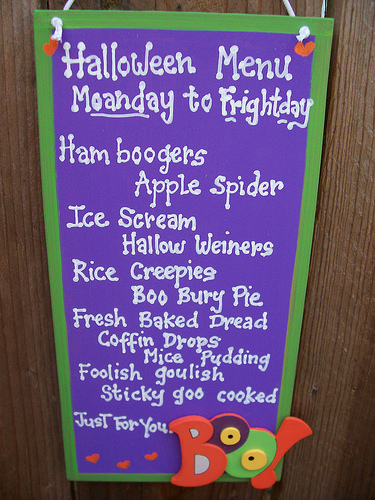 Halloween Menu
Moanday to Frightday
Ham boogers
Apple Spider
Ice Scream
Hallow Weiners
Rice Creepies
Boo Bury Pie
Fresh Baked Dread
Coffin Drops
Mice Pudding
Foolish goulish
Sticky goo cooked
Just For You..
Boo!